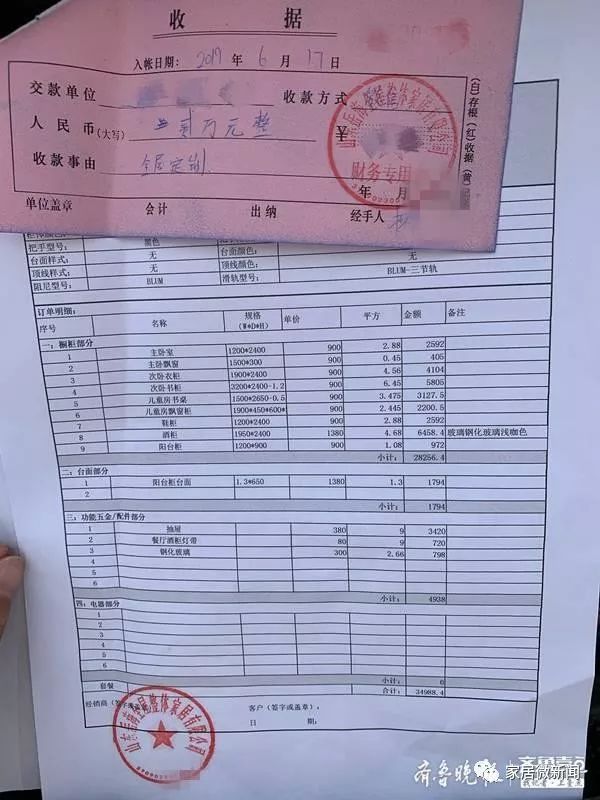 收 据
入帐日期：2019 年 6 月 17 日
交款单位 收款方式
人民币(大写) 贰万元整 ¥
收款事由 全屋定制
财务专用
年 月
单位盖章 会计 出纳 经手人
(白)存根 (红)收据 (黄)
把手型号： 黑色
台面样式： 无 台面颜色： 无
顶线样式： 无 顶线颜色： 无
阻尼型号： BLUM 滑轨型号： BLUM-三节轨
订单明细：
序号 名称 规格(W*D*H) 单价 平方 金额 备注
一：橱柜部分
1 主卧室 1200*2400 900 2.88 2592
2 主卧飘窗 1500*300 900 0.45 405
3 次卧衣柜 1900*2400 900 4.56 4104
4 次卧书柜 3200*2400-1.2 900 6.45 5805
5 儿童房书桌 1500*2650-0.5 900 3.475 3127.5
6 儿童房飘窗柜 1900*450*600* 900 2.445 2200.5
7 鞋柜 1200*2400 900 2.88 2592
8 酒柜 1950*2400 1380 4.68 6458.4 玻璃钢化玻璃浅咖色
9 阳台柜 1200*900 900 1.08 972
小计： 28256.4
二：台面部分
1 阳台柜台面 1.3*650 1380 1.3 1794
2
小计： 1794
三：功能五金/配件部分
1 抽屉 380 9 3420
2 餐厅酒柜灯带 80 9 720
3 钢化玻璃 300 2.66 798
4
5
6
小计： 4938
四：电器部分
1
2
3
4
5
6
小计： 0
套餐 合计： 34988.4
经销商(签字或盖章) 客户(签字或盖章)：
日 期：
齐鲁晚报
家居微新闻